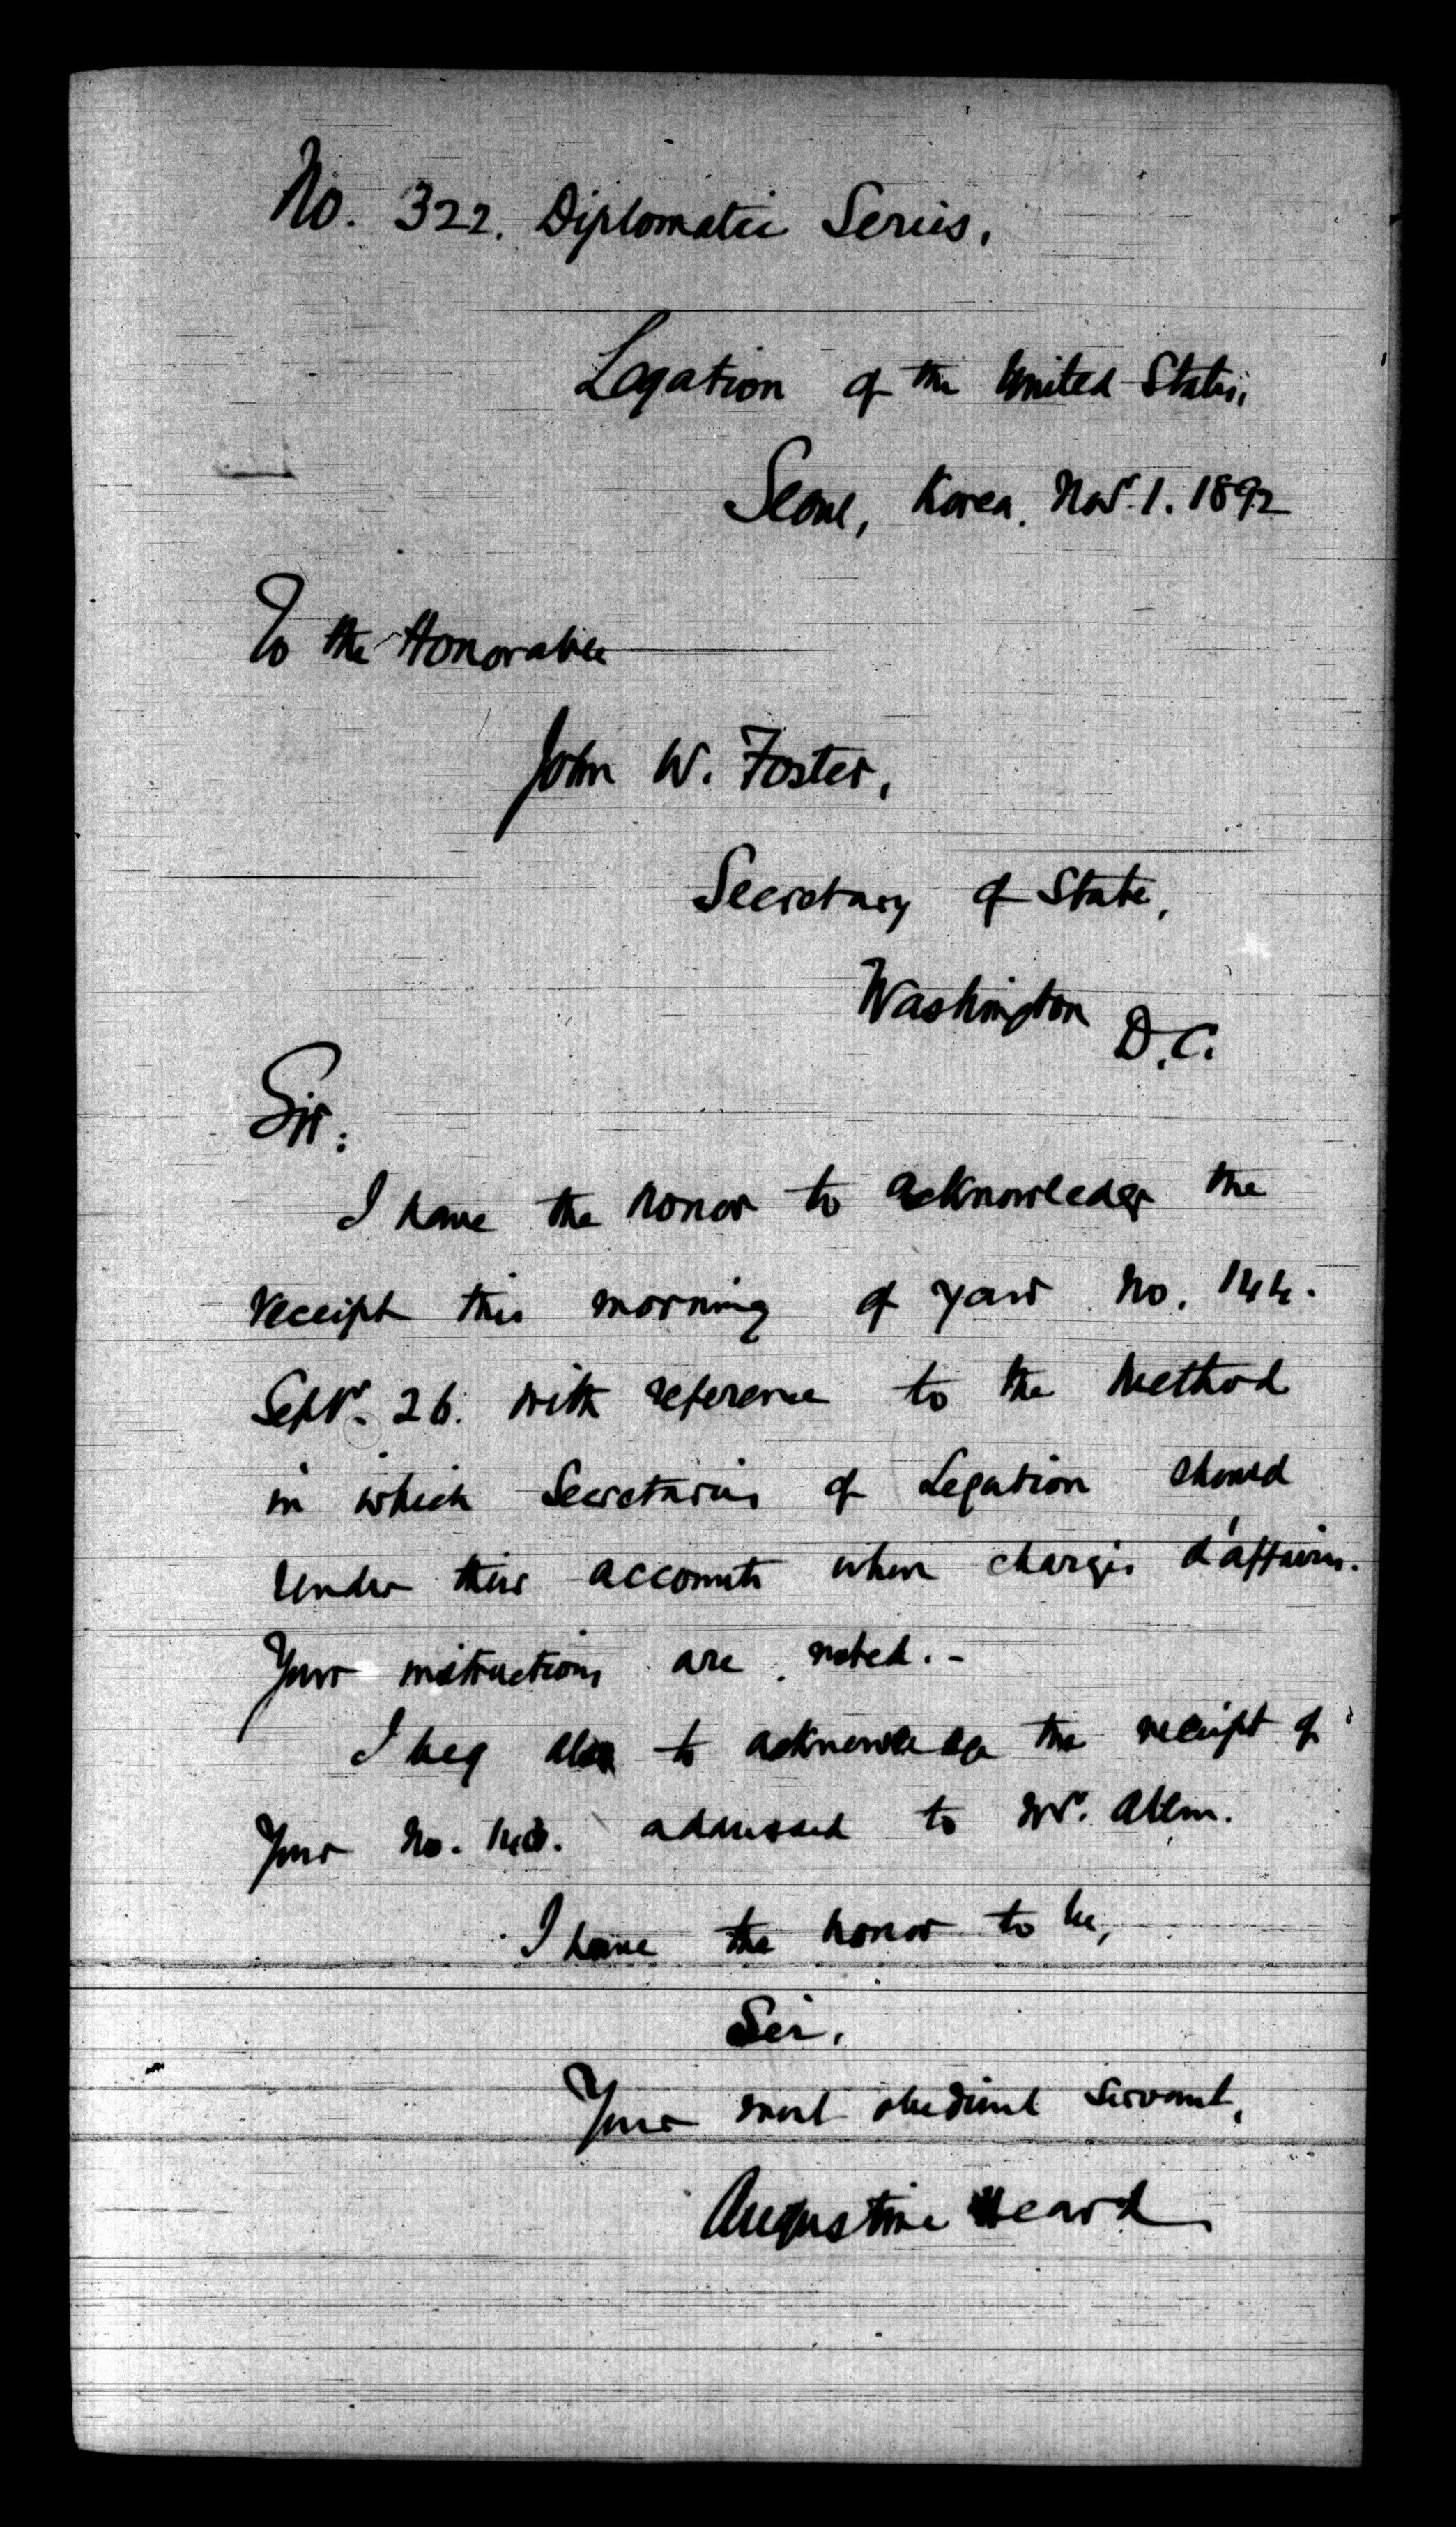 No. 322. Diplomatic Series.
Legation of the United States,
Seoul, Korea. Novr. 1. 1892
To the Honorable
John W. Foster,
Secretary of State,
Washington D.C.
Sir:
I have the honor to acknowledge the
receipt this morning of your No. 144.
Septr. 26. with reference to the method
in which Secretaries of Legation should
render their accounts when chargés d'affaires.
Your instructions are noted. -
I beg also to acknowledge the receipt of
Your No. addressed to Mr. Allen.
I have the honor to be,
Sir,
Your most obedient servant,
Augustine Heard